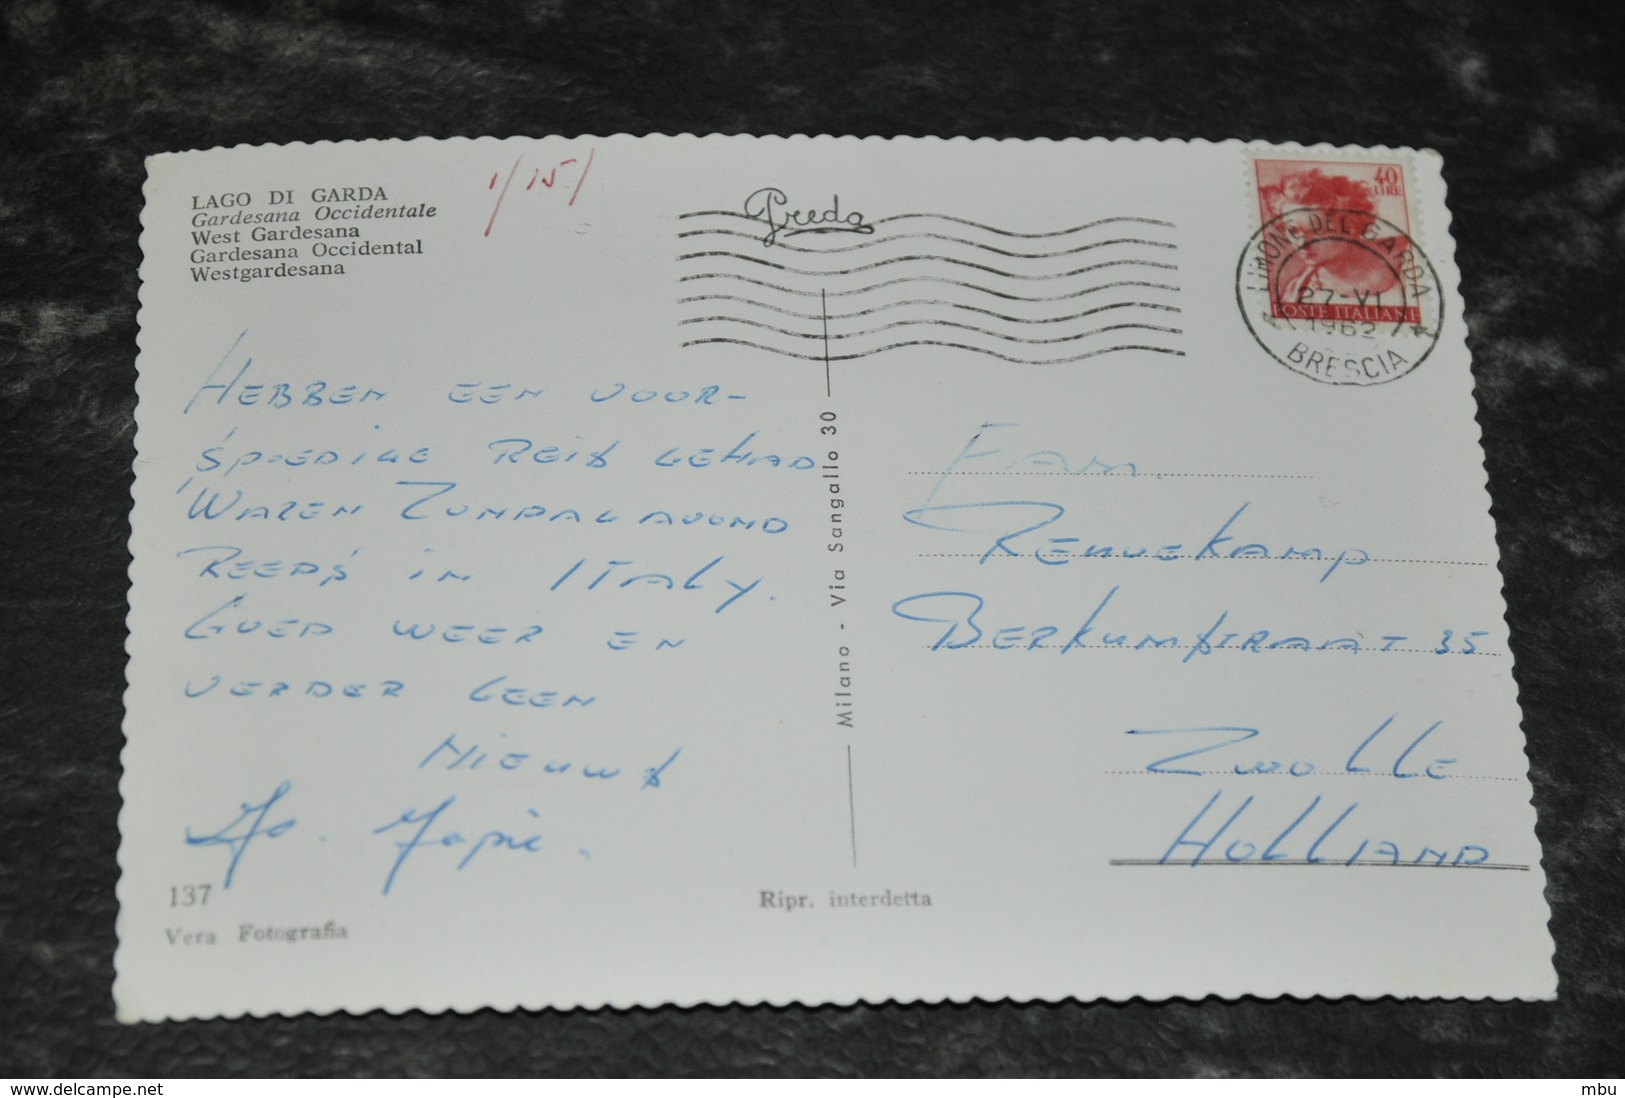 LAGO DI GARDA
Gardesana Occidentale
West Gardesana
Gardesana Occidental
Westgardesana
1/15/
Preda
40
LIRE
POSTE ITALIANE
LIMONE DEL GARDA
27-VI
1962
BRESCIA
HEBBEN EEN VOOR-
SPOEDIGE REIS GEHAD
WAREN ZONDAGAVOND
REEDS IN ITALY.
GOED WEER EN
VERDER GEEN
NIEUWS
Jo. Japie.
137
Vera Fotografia
Milano - Via Sangallo 30
Ripr. interdetta
FAM.
BERKUMSTRAAT 35
ZWOLLE
HOLLAND
www.delcampe.net
mbu